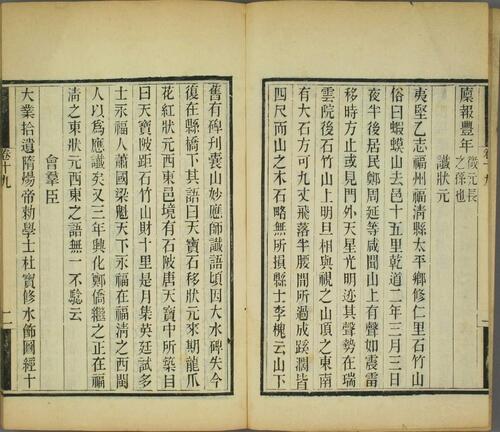 報豐年
之孫也
讖狀元
夷堅乙志福州福淸縣太平鄉修仁里石竹山
俗曰蝦蟆山去邑十五里乾道二年三月三日
夜半後居民鄭周延等咸聞山上有聲如震雷
移時方止或見門外天星光明迹其聲勢在瑞
雲院後石竹山上明旦相與視之山頂之東南
有大石方可九丈飛落半腰間所過成蹊濶皆
四尺而山之木石略無所損縣士李槐云山下
舊有碑刋囊山妙應師讖語頃因大水碑失今
復在縣橋下其語曰天寶石移狀元來期龍爪
花紅狀元西東邑境有石陂唐天寶中所築目
曰天寶陂距石竹山財十里是月集英廷試多
士永福人蕭國梁魁天下永福在福淸之西閩
人以爲應讖矣又三年興化鄭僑繼之正在福
淸之東狀元西東之語無一不騐云
會羣臣
大業拾遺隋煬帝勑學士杜寶修水飾圖經十
卷十九